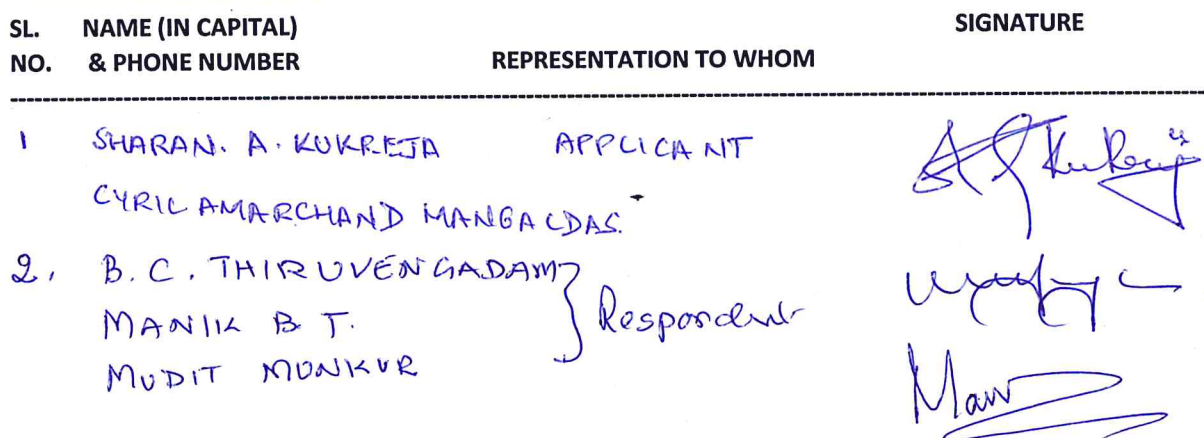 SL. NAME (IN CAPITAL) SIGNATURE
NO. & PHONE NUMBER REPRESENTATION TO WHOM
1 SHARAN. A. KUKREJA APPLICANT
CYRIL AMARCHAND MANGALDAS.
2. B. C. THIRUVENGADAM
MANIK B T. Respondent
MUDIT MUNKUR